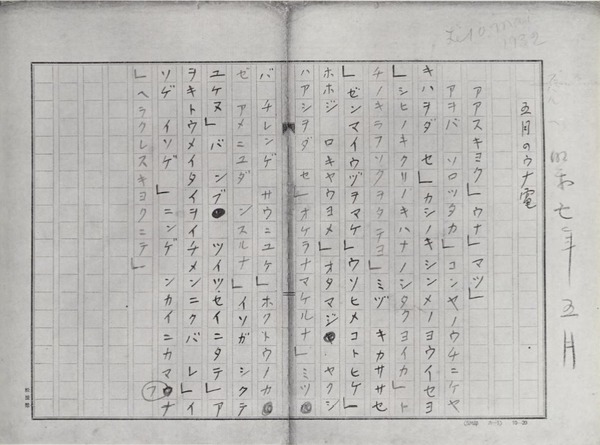 昭和七年五月
五月のウナ電
アアスキヨク」ウナ」マツ」
アヲバ ソロツタカ」コンヤノウチニケヤ
キハヲダ セ」カシノキシンメノヨウイセヨ
」シヒノキクリノキハナノシタクヨイカ」ト
チノキラフソクヲタテヨ」ミヅ キカササセ
」ゼンマイウヅヲマケ」ウソヒメコトヒケ」
ホホジ ロキヤウヨメ」オタマジ ヤクシ
ハアシヲダ セ」オケラナマケルナ」ミツ
バ チレンゲ サウニユケ」ホクトウノカ
ゼ アメニユダ ンスルナ」イソガ シクテ
ユケヌ」バンブ ツイツセイニタテ」ア
ヲキトウメイタイヲイチメンニクバ レ」イ
ソゲ イソゲ 」ニンゲ ンカイニカマウナ
」ヘラクレスキヨクニテ」